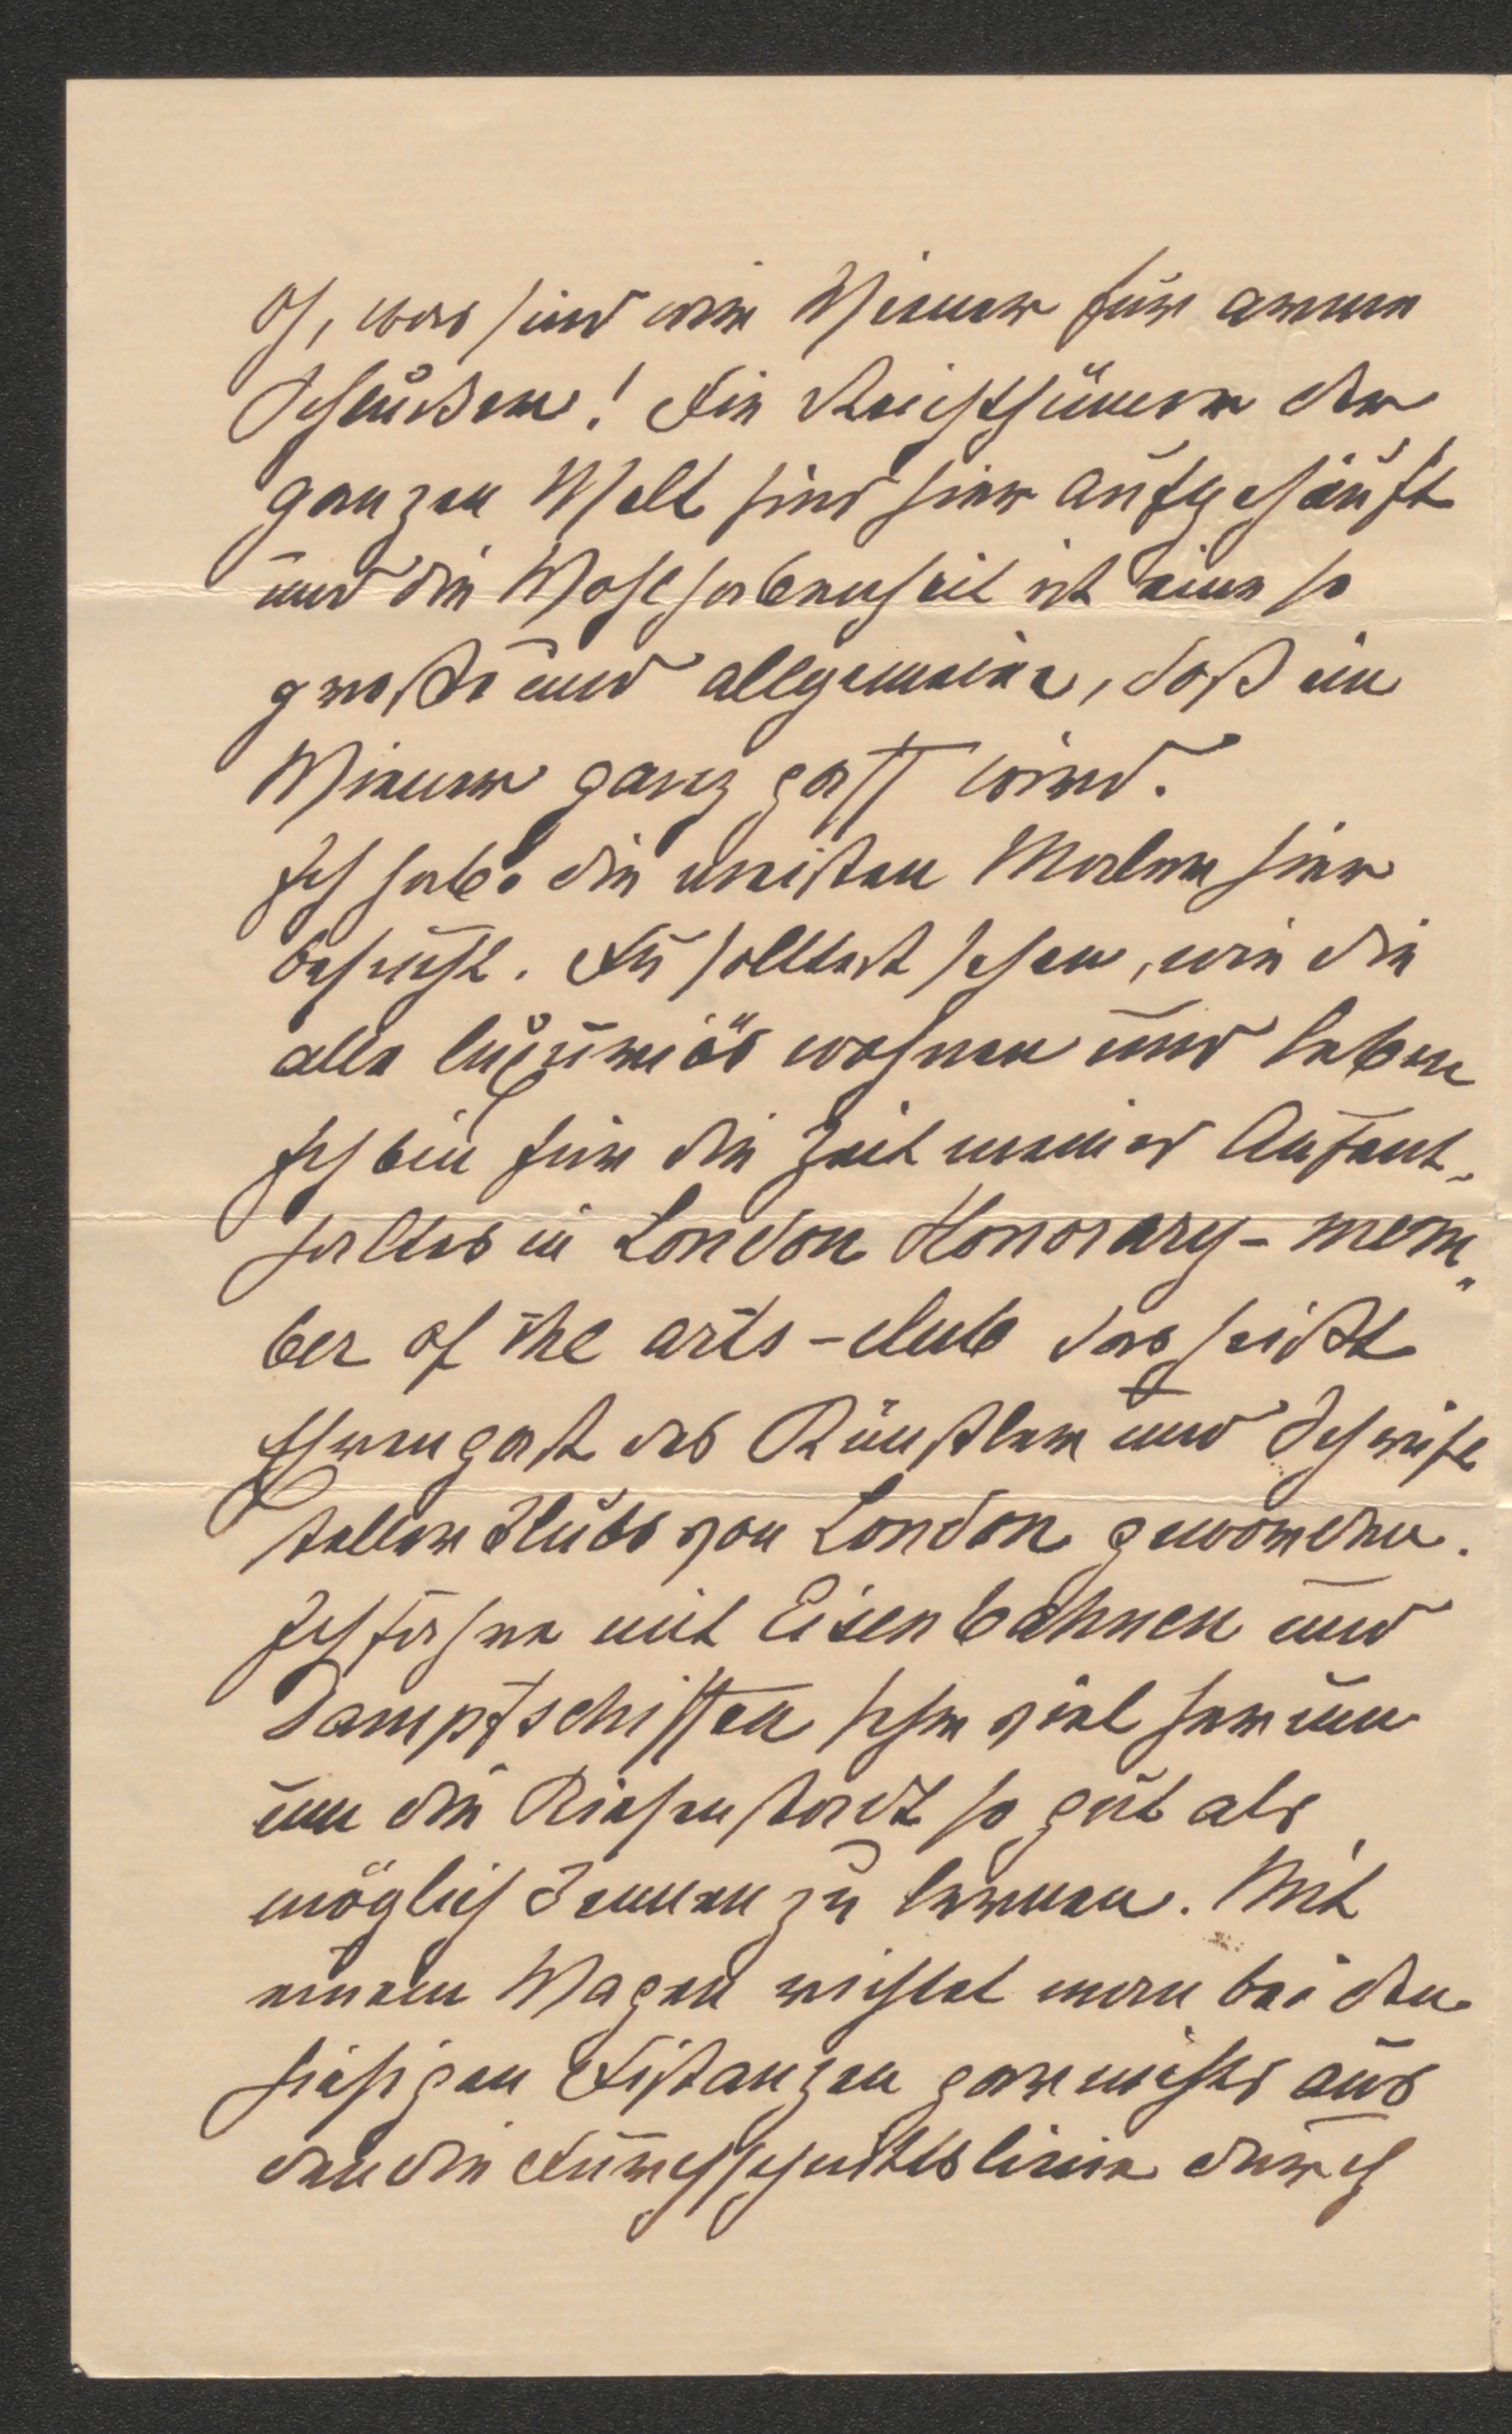 O, was sind wir Wiener für arme
Schlucker! Die Reichthümer der
ganzen Welt sind hier aufgehäuft
und die Wohlhabenheit ist eine so
große und allgemeine, daß ein
Wiener ganz paff wird.
Ich habe die meisten Maler hier
besucht. Du solltest sehen, wie die
alle luxuriös wohnen und leben
Ich bin für die Zeit meines Aufent-
haltes in London Honorary-mem-
ber of the arts-club das heißt
Ehrengast des Künstler und Schrift
steller Klubs von London geworden.
Ich fahre mit Eisenbahnen und
Dampfschiffen sehr viel herum
um die Riesenstadt so gut als
möglich kennen zu lernen. Mit
einem Wagen richtet man bei den
hiesigen Distanzen gar nichts aus
den die Durchschnittslinie durch